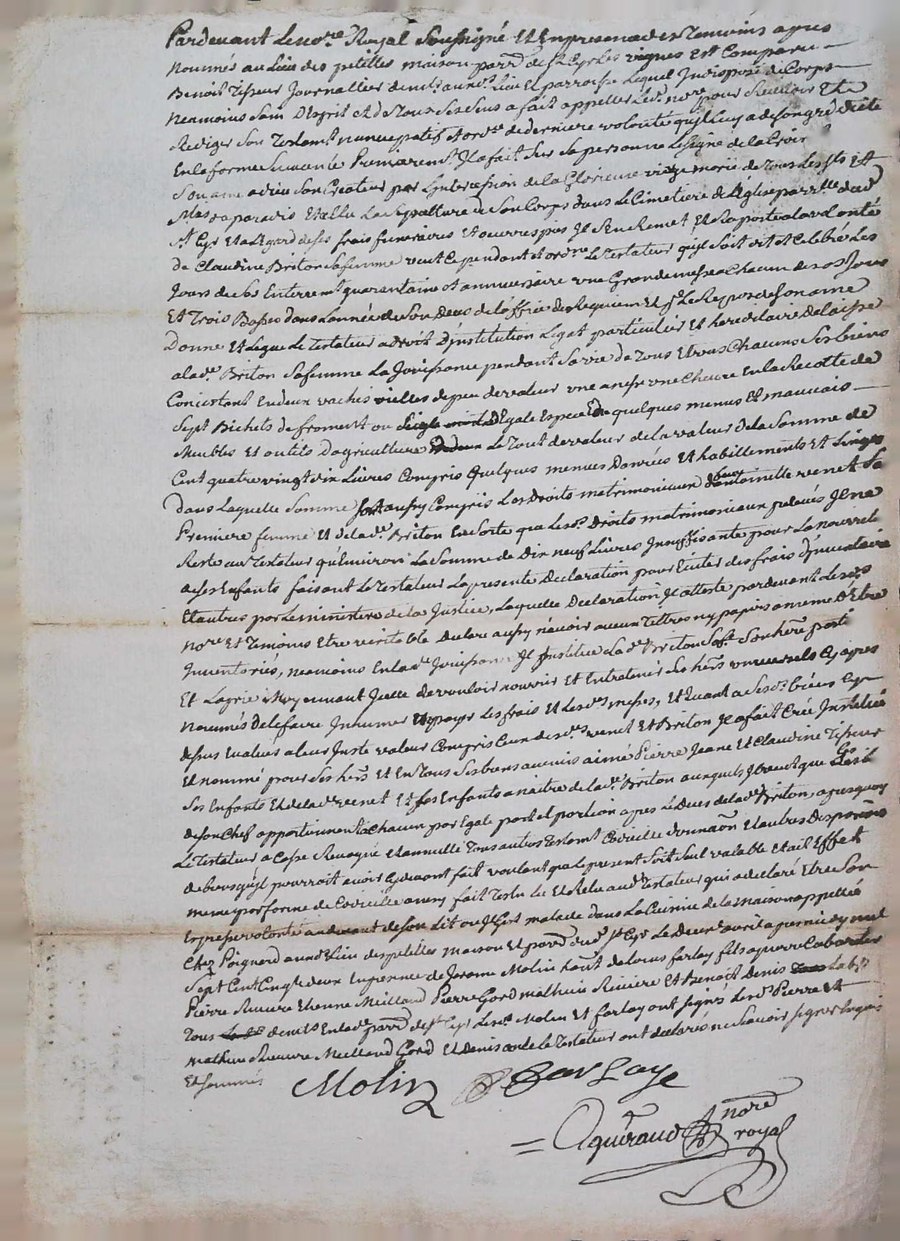 Pardevant Le no.re Royal Soussigné Et En presence des Temoins apres
nommés au Lieu des petittes maison parr.e de St Cyr Les vignes Est Comparu
Benoit Tisseur Journallier dem.t aud. Lieu Et parroisse Lequel Indisposé de Corps
neamoins Sain D'esprit Et de tous Ses Sens a fait appeller Led. no.re pour Recevoir Et
Rediger Son Testam.t nuncupatif Et ord.ce de derniere volonté qu'il luy a de Son gré dicté
En la forme Suivante Premierem.t Il a fait Sur Sa personne Le Signe de la Croix
Son ame a dieu Son Createur par L'intercession de la Glorieuse vierge marie de tous Les Sts Et
Stes a paradis Et Elu La Sepulture de Son Corps dans Le Cimetiere de L'eglise parr.lle dud.
St Cyr Et a L'Egard de Ses frais funeraires Et oeuvres pies Il S'en Remet Et Raporte a la volonté
de Claudine Briton Sa femme veut Cependant Et ord.ne Le Testateur qu'il Soit dit et Celebré Les
Jours de Ses Enterrem.t quarantaine et anniversaire une Grande messe a Chacun des d. Jours
Et Trois Basses dans L'année de Son Deces de L'office des Requiem Et p.r Le Repos de Son ame
Donne Et Legue Le Testateur a Droit D'institution Legat particulier Et hereditaire Delaisse
a lad.e Briton Sa femme La Jouissance pendant Sa vie de Tous Et uns Chacuns Ses biens
Consistant En deux vaches vielles de peu de valeur une anesse une Chevre En la Recolte de
Sept Bichets de froment ou Seigle Egale Espece de quelques menus Et mauvais
Meubles Et outils D'agriculture Le Tout de valeur de la valeur de la Somme de
Cent quatre vingt dix Livres Compris Quelques menues Danrées Et habillements Et Linges
dans Laquelle Somme Sont aussy Compris Les Droits matrimoniaux venet Sa
Premiere femme Et de lad.e Briton En Sorte que Les d. Droits matrimoniaux prelevés Il ne
Reste aud. Testateur qu'Environ La Somme de Dix neuf Livres Insuffisante pour La nourrit.
de Ses Enfants faisant Le Testateur La presente Declaration pour Eviter des frais d'Inventaire
Et autres par Le ministere de la Justice, Laquelle Declaration Il atteste pardevant Led.
No.re Et Temoins Etre veritable Declare aussy n'avoir aucun Tiltres ny papiers a meme D'Etre
Inventoriés, neamoins En lad.e Jouissance Il Institue La d.e Briton Sa f.e Son here parti
Et La prie Moyennant Icelle de vouloir nourrir Et Entretenir Ses hers universels Cy apres
Nommés de le faire Inhumer Et payer Les frais Et Les d. messes, Et Quant a Ses d. biens Cy
dessus Evalués a leur Juste valeur Compris Ceux des d. venet Et Briton Il a fait Créé Institué
Et nommé pour Ses hers Et En Tous Ses biens a venir aimé Pierre Jeane Et Claudine Tisseur
Ses Enfants Et de lad. venet Et Ses Enfants a naitre de la d. Briton auxquels Il veut que Ses b.
de Son Chef appartiennent a Chacun par Egale part Et portion apres Le Deces de la d. Briton, a quoy
Le Testateur a Cassé Revoqué Et annullé Tous autres Testam.t Codicille donnaon Et autres Dispositions
de biens qu'il pourroit avoir Cy devant fait voulant que Le present Soit Seul valable Et ait Effet
meme par forme de Codicille ainsy fait Testé Lu Et Relu aud. Testateur qui a declaré Etre Son
Expresse volonté audevant de Son Lit ou Il Est malade dans La Cuisine de la maison appellée
Chez Poignard aud. Lieu des petittes maison Et parr.e dud. St Cyr Le Deux avril apres midy mil
Sept Cent Cinq.te deux En presence de Jerome Molin Louis farlay fils a pierre
Pierre Riviere Etienne Meilland Pierre Gord mathieu Riviere Et Benoit Denis Lab.rs
Tous dem.ts En lad.e parr.e de St Cyr Les d. Molin Et farlay ont Signés Les d. Pierre Et
mathieu Riviere Meilland Gord Et Denis avec Le Testateur ont declarés ne Scavoir Signer Enquis
Et Sommés
Molin farlaye
Aguiraud nore
royal